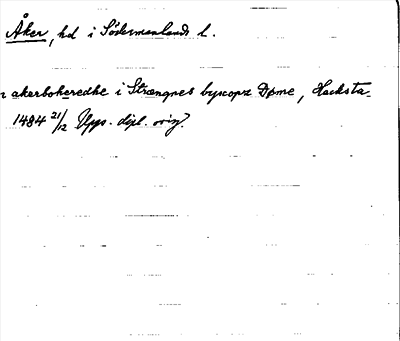 Åker, hd i Södermanlands l.
akerbokeredhe i Strængnes byscopz Døme, Hacksta
1484 21/12 Upps. dipl. orig.